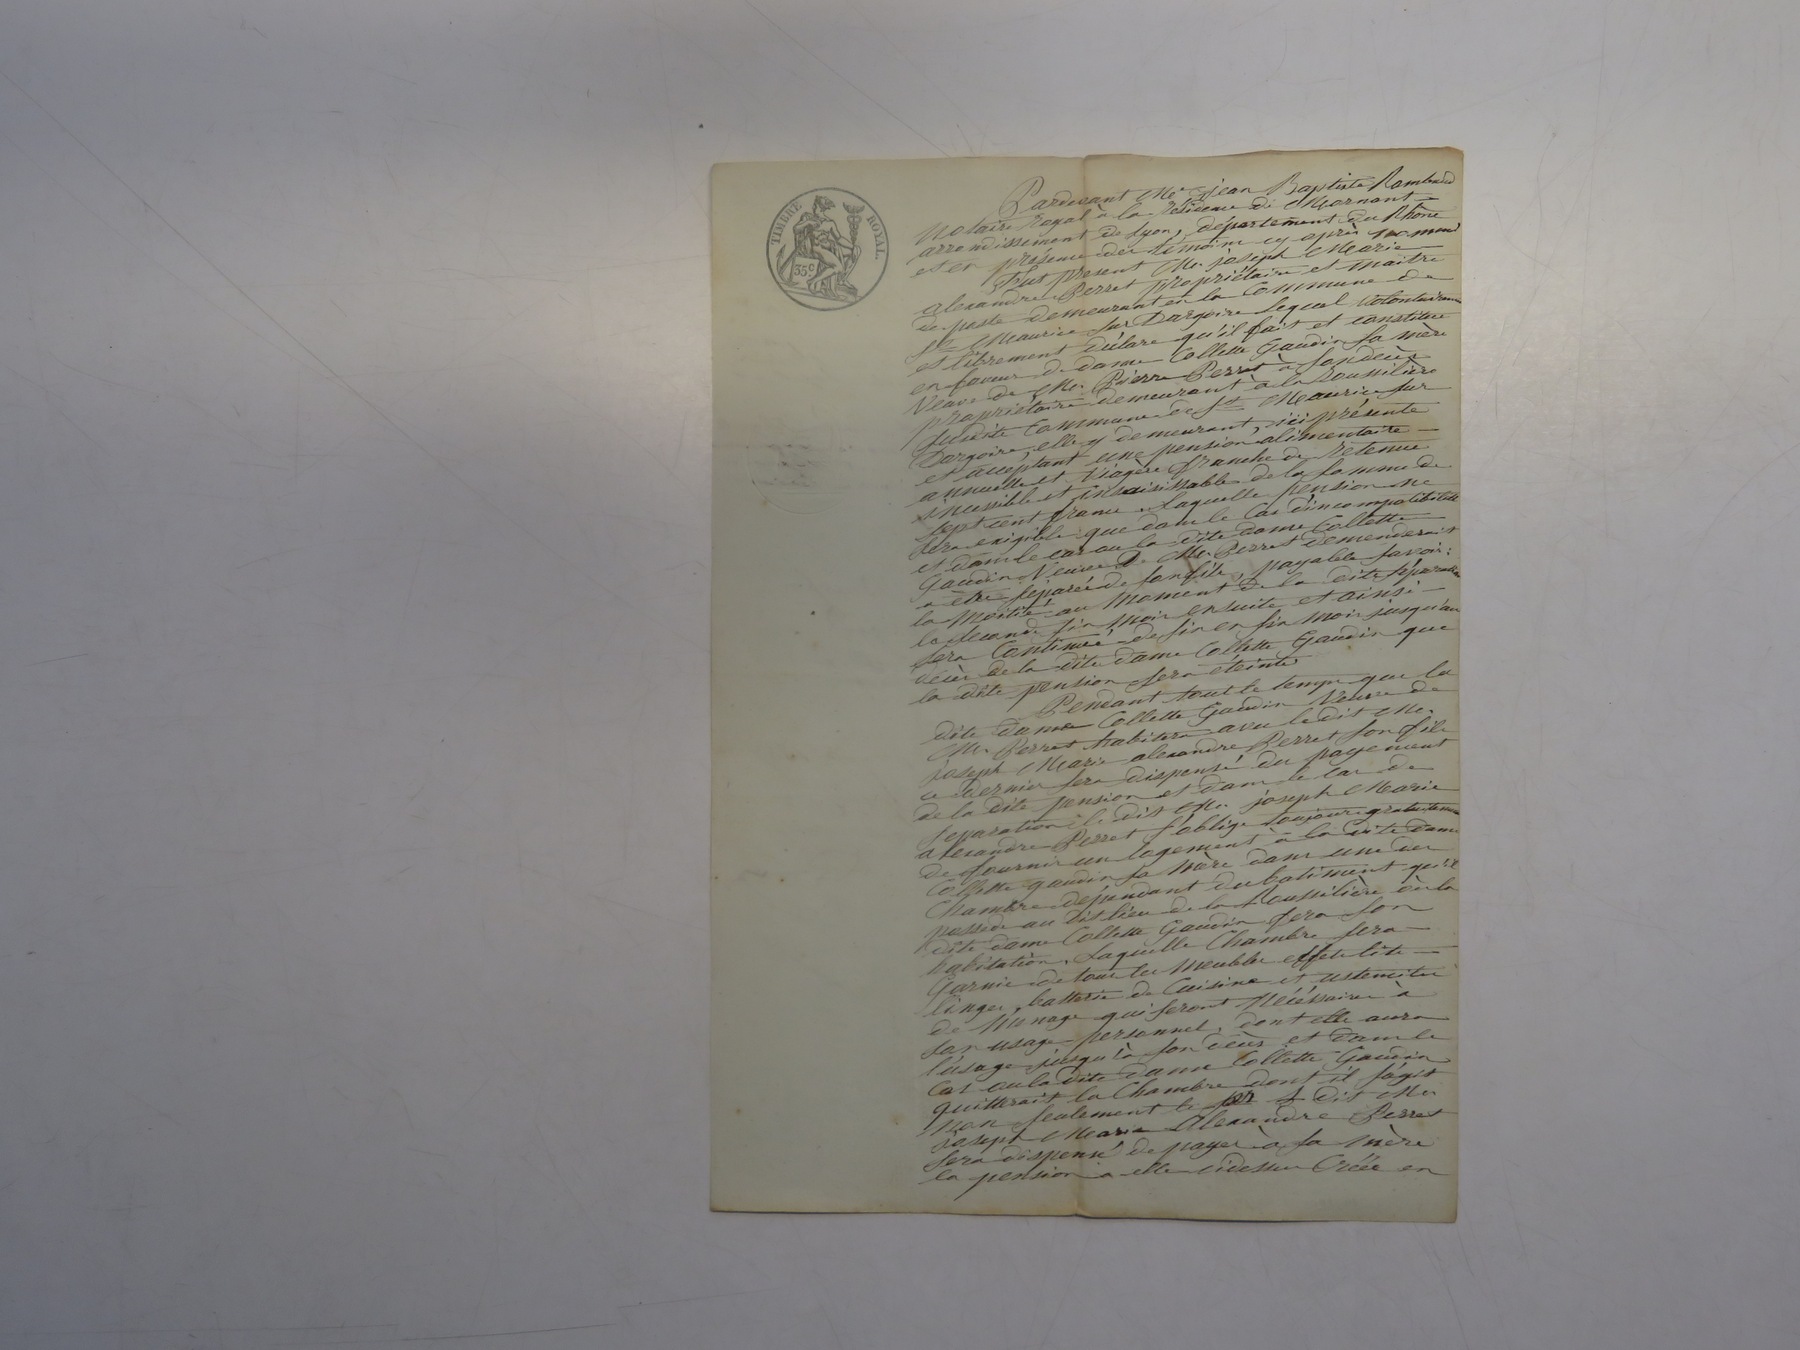 TIMBRE ROYAL
35c
Pardevant Me jean Baptiste
Notaire royal à la résidence de Mornant
arrondissement de Lyon, département du Rhône
et en présence des témoins cy après nommés
Fut présent Mr. joseph Marie
alexandre Perret propriétaire et maitre
de poste demeurant en la Commune de
St Maurice sur Dargoire lequel volontairement
et librement déclare qu'il fait et constitue
en faveur de dame Collette Gaudin sa mère
Veuve de Mr. Pierre Perret à son décès
propriétaire demeurant à la Roussilière
susdite Commune de St Maurice sur
Dargoire, elle y demeurant, ici présente
et acceptant une pension alimentaire
annuelle et viagère franche de retenue
incessible et insaisissable de la somme de
sept cent francs laquelle pension ne
sera exigible que dans le Cas d'incompatibilité
et dans le cas ou la dite dame Collette
Gaudin Veuve de Mr. Perret demenderait
a être séparée de son fils, payable savoir:
la moitié au moment de la dite séparation
la seconde six mois ensuite et ainsi
sera Continué de six en six mois jusqu'au
décès de la dite dame Collette Gaudin que
la dite pension sera éteinte
Pendant tout le temps que la
dite dame Collette Gaudin Veuve de
Mr. Perret habitera avec le dit Mr.
joseph Marie alexandre Perret son fils
ce dernier sera dispensé du payement
de la dite pension et dans le cas de
séparation le dit Mr. joseph Marie
alexandre Perret s'oblige toujours gratuitement
de fournir un logement à la dite dame
Collette gaudin sa mère dans une des
Chambre dépendant du batiment qu'il
possède au dit lieu de la Roussilière où la
dite dame Collette Gaudin fera son
habitation, Laquelle Chambre sera
Garnie de tous les meubles effets lits
linges, batterie de Cuisine et ustenciles
de Ménage qui seront Nécéssaires à
son usage personnel, dont elle aura
l'usage jusqu'à son décès et dans le
Cas ou la dite dame Collette Gaudin
quitterait la Chambre dont il s'agit
non seulement le dit Mr.
joseph Marie Alexandre Perret
sera dispensé de payer à sa mère
la pension à elle cidessus Créée en